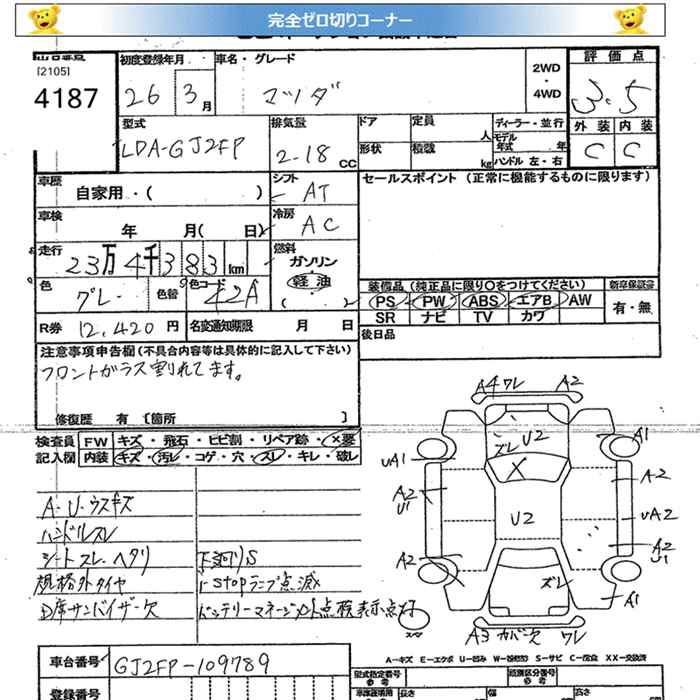 完全ゼロ切りコーナー
[2105]
4187
初度登録年月
26 3月
車名・グレード
マツダ
2WD
・
4WD
評価点
3.5
外装 内装
C C
型式
LDA-GJ2FP
排気量
2.18 CC
ドア 定員 人
形状 積載 kg
ディーラー・並行
モデル年式 年
ハンドル 左・右
車歴
自家用・( )
シフト
AT
セールスポイント (正常に機能するものに限ります)
車検
年 月( 日)
冷房
AC
走行
23万4千383km
燃料
ガソリン
軽油
( )
色
グレー
色替
色コード
42A
装備品 (純正品に限り○をつけてください)
PS PW ABS エアB AW
SR ナビ TV カワ
新車保証書
有・無
R券 12,420円
名変通知期限 月 日
後日品
注意事項申告欄 (不具合内容等は具体的に記入して下さい)
フロントガラス割れてます。
修復歴 有 〔箇所 〕
検査員記入欄
FW キズ・飛石・ヒビ割・リペア跡・×要
内装 キズ・汚レ・コゲ・穴・スレ・キレ・破レ
A・U・ウスキズ
ハンドルスレ
シートスレ・ヘタリ
下廻りS
規格外タイヤ
i-stopランプ点滅
D席サンバイザー欠
バッテリーマネージメント点検表示点灯
A4 ワレ A2
ズレ U2
A1
UA1
X
A2
A2
U1
U2
UA2
A2
U1
A2
ズレ
A1
スペア
A3 カバー欠 ワレ
A-キズ E-エクボ U-凹み W-波板凹 S-サビ C-腐食 XX-交換済
車台番号
GJ2FP-109789
型式指定番号
参考
類別区分番号
参考
登録番号
長さ
幅
高さ